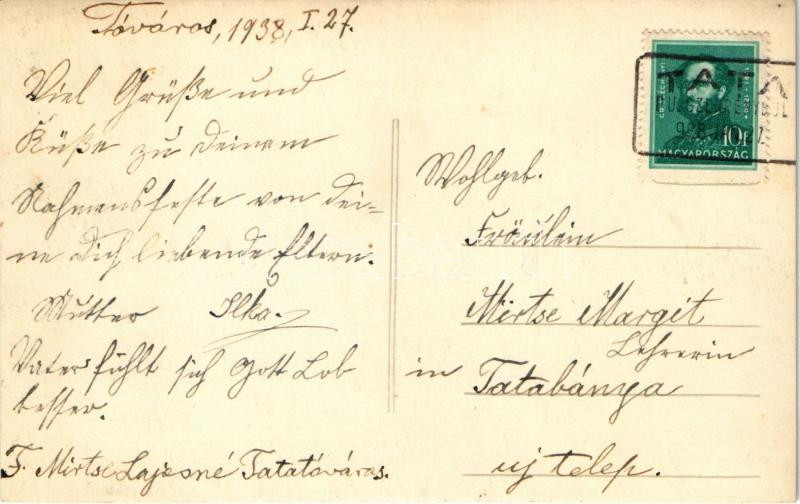 Tóváros, 1938, I. 27.
Viel Grüße und
Küße zu deinem
Nahmensfeste von dei-
ne dich liebende Eltern.
Mutter Ilka.
Vater fühlt sich Gott Lob
besser.
F. Mirtse Lajosné Tatatóváros.
TATA
938
10f
MAGYARORSZÁG
Wohlgeb.
Fräulein
Mirtse Margit
Lehrerin
in Tatabánya
uj telep.